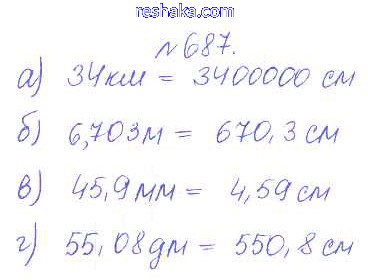 reshaka.com
№687.
а) 34км = 3400000 см
б) 6,703м = 670,3 см
в) 45,9мм = 4,59 см
г) 55,08дм = 550,8 см